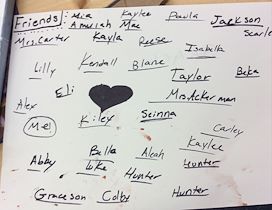 Friends: Mia Kaylee Paula Jackson
Amuriah Mae Scarle
Mrs. Carter Kayla Reese Isabella
Lilly Kendall Blane
Taylor Beka
Eli Mrs Ackerman
Alex Kiley Seinna
Me Carley
Kaylee
Abby Bella Aleah Hunter
Luke Hunter
Graceson Colby Hunter